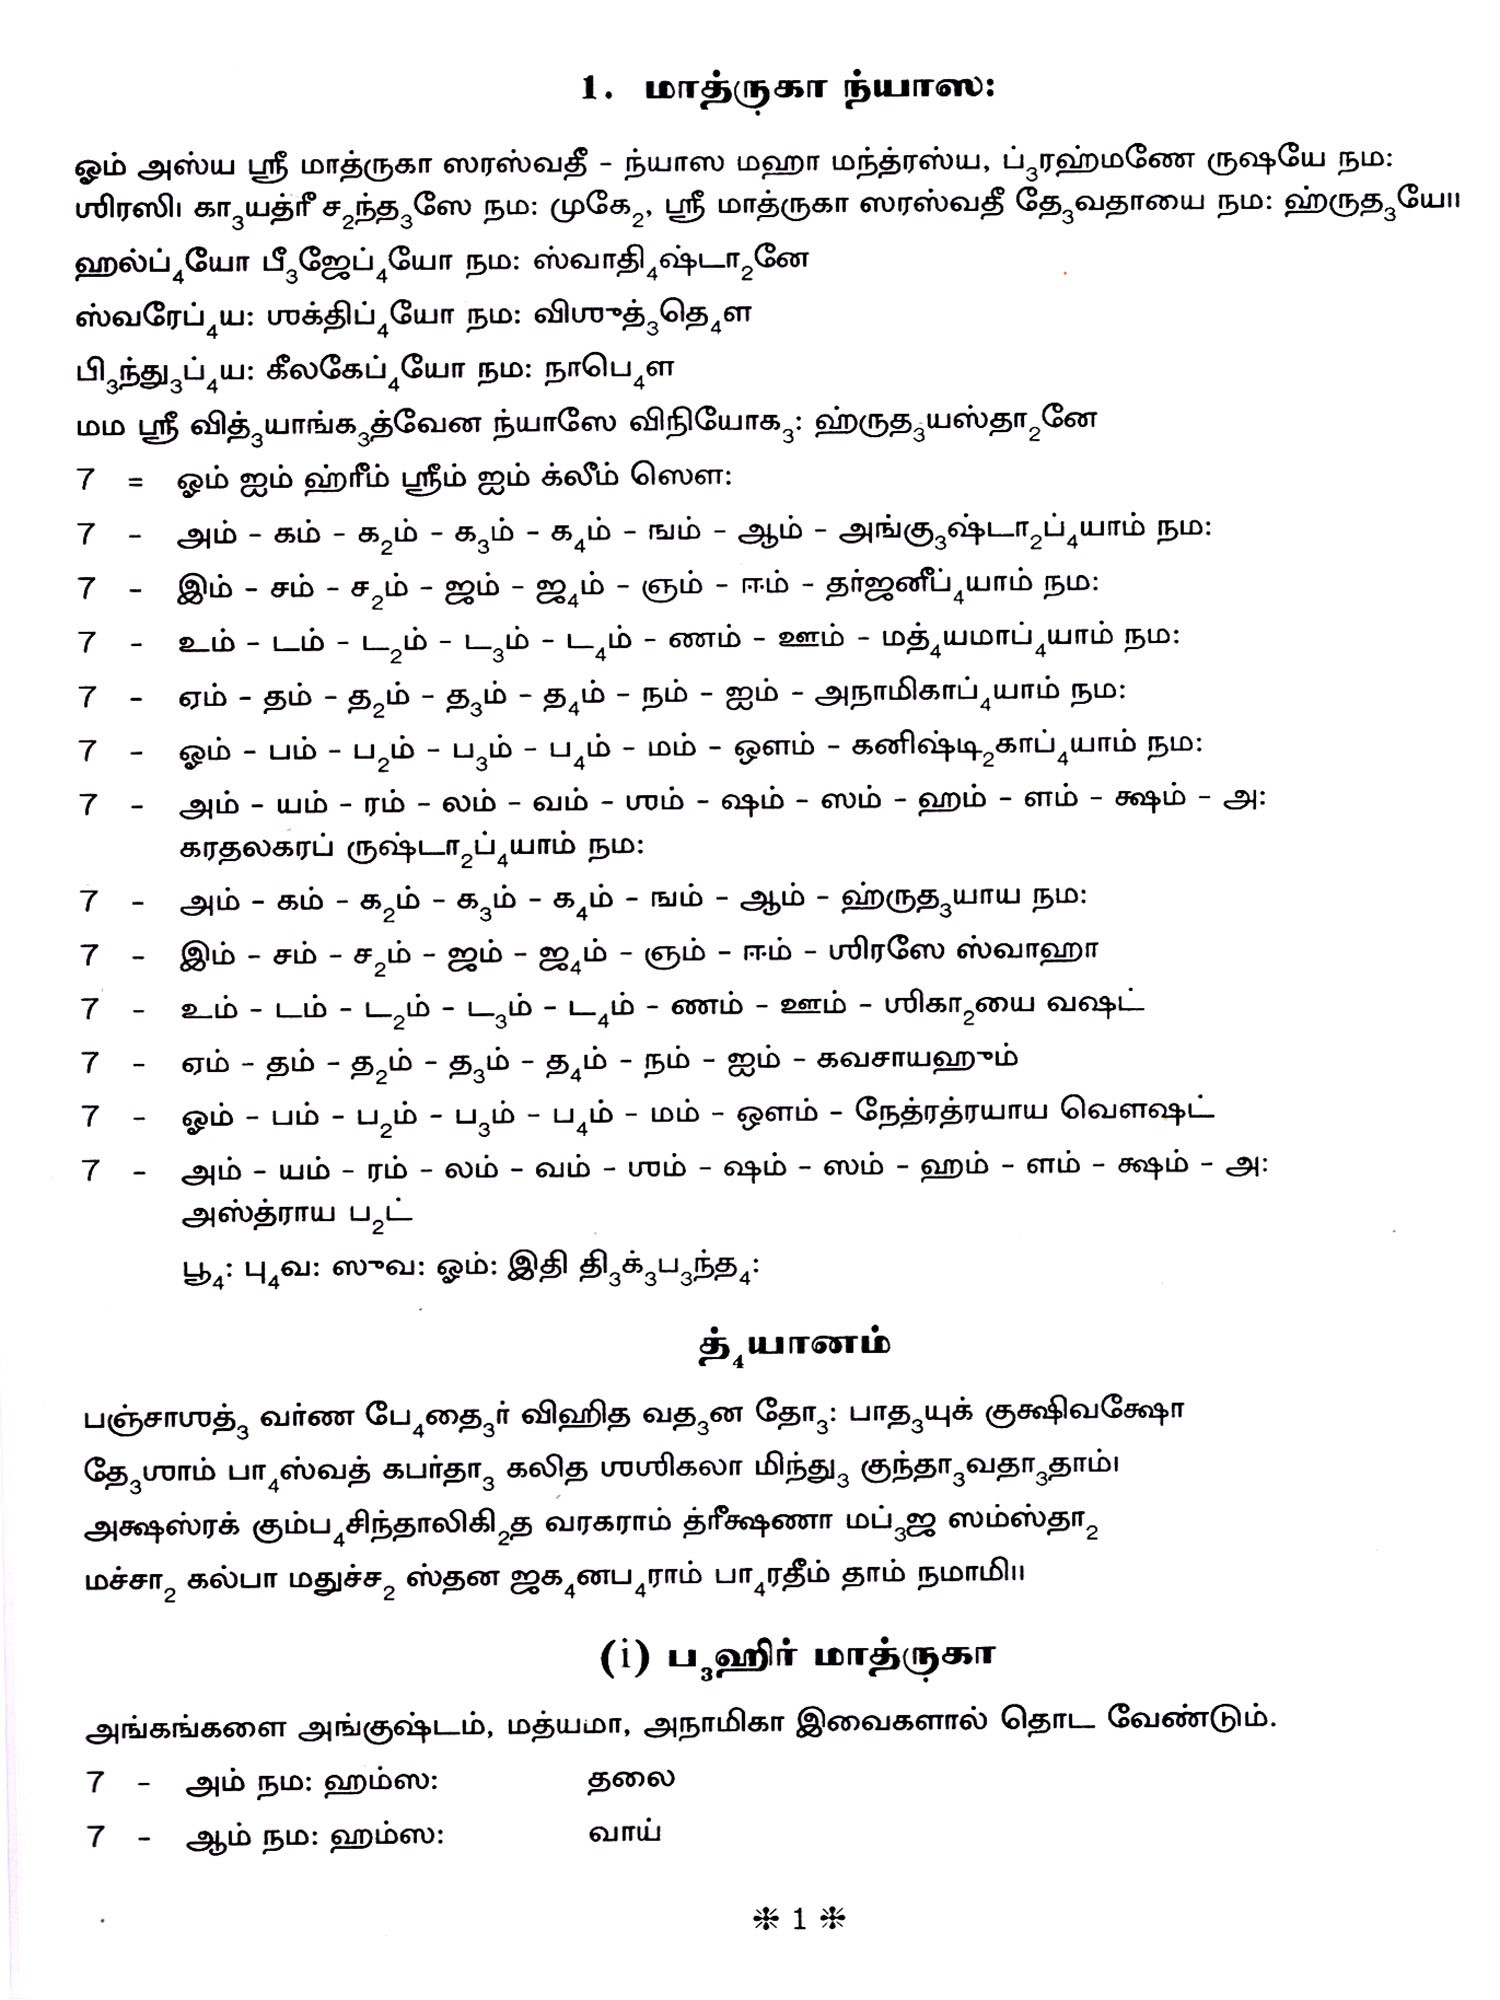 1. மாத்ருகா ந்யாஸ:
ஓம் அஸ்ய ஸ்ரீ மாத்ருகா ஸரஸ்வதீ – ந்யாஸ மஹா மந்த்ரஸ்ய, ப்₃ரஹ்மணே ருஷயே நம:
ஶிரஸி। கா₃யத்ரீ ச₂ந்த₃ஸே நம: முகே₂, ஸ்ரீ மாத்ருகா ஸரஸ்வதீ தே₃வதாயை நம: ஹ்ருத₃யே॥
ஹல்ப்₄யோ பீ₃ஜேப்₄யோ நம: ஸ்வாதி₄ஷ்டா₂னே
ஸ்வரேப்₄ய: ஶக்திப்₄யோ நம: விஶுத்₃தெ₄ள
பி₃ந்து₃ப்₄ய: கீலகேப்₄யோ நம: நாபெ₄ள
மம ஸ்ரீ வித்₃யாங்க₃த்வேன ந்யாஸே விநியோக₃: ஹ்ருத₃யஸ்தா₂னே
7 = ஓம் ஐம் ஹ்ரீம் ஸ்ரீம் ஐம் க்லீம் ஸௌ:
7 – அம் – கம் – க₂ம் – க₃ம் – க₄ம் – ஙம் – ஆம் – அங்கு₃ஷ்டா₂ப்₄யாம் நம:
7 – இம் – சம் – ச₂ம் – ஜம் – ஜ₄ம் – ஞம் – ஈம் – தர்ஜனீப்₄யாம் நம:
7 – உம் – டம் – ட₂ம் – ட₃ம் – ட₄ம் – ணம் – ஊம் – மத்₄யமாப்₄யாம் நம:
7 – ஏம் – தம் – த₂ம் – த₃ம் – த₄ம் – நம் – ஐம் – அநாமிகாப்₄யாம் நம:
7 – ஓம் – பம் – ப₂ம் – ப₃ம் – ப₄ம் – மம் – ஔம் – கனிஷ்டி₂காப்₄யாம் நம:
7 – அம் – யம் – ரம் – லம் – வம் – ஶம் – ஷம் – ஸம் – ஹம் – ளம் – க்ஷம் – அ:
கரதலகரப் ருஷ்டா₂ப்₄யாம் நம:
7 – அம் – கம் – க₂ம் – க₃ம் – க₄ம் – ஙம் – ஆம் – ஹ்ருத₃யாய நம:
7 – இம் – சம் – ச₂ம் – ஜம் – ஜ₄ம் – ஞம் – ஈம் – ஶிரஸே ஸ்வாஹா
7 – உம் – டம் – ட₂ம் – ட₃ம் – ட₄ம் – ணம் – ஊம் – ஶிகா₂யை வஷட்
7 – ஏம் – தம் – த₂ம் – த₃ம் – த₄ம் – நம் – ஐம் – கவசாயஹும்
7 – ஓம் – பம் – ப₂ம் – ப₃ம் – ப₄ம் – மம் – ஔம் – நேத்ரத்ரயாய வௌஷட்
7 – அம் – யம் – ரம் – லம் – வம் – ஶம் – ஷம் – ஸம் – ஹம் – ளம் – க்ஷம் – அ:
அஸ்த்ராய ப₂ட்
பூ₄: பு₄வ: ஸுவ: ஓம்: இதி தி₃க்₃ப₃ந்த₄:
த்₄யானம்
பஞ்சாஶத்₃ வர்ண பே₄தை₃ர் விஹித வத₃ன தோ₃: பாத₃யுக் குக்ஷிவக்ஷோ
தே₃ஶாம் பா₄ஸ்வத் கபர்தா₃ கலித ஶஶிகலா மிந்து₃ குந்தா₃வதா₃தாம்।
அக்ஷஸ்ரக் கும்ப₄சிந்தாலிகி₂த வரகராம் த்ரீக்ஷணா மப்₃ஜ ஸம்ஸ்தா₂
மச்சா₂ கல்பா மதுச்ச₂ ஸ்தன ஜக₄னப₄ராம் பா₄ரதீம் தாம் நமாமி॥
(i) ப₃ஹிர் மாத்ருகா
அங்கங்களை அங்குஷ்டம், மத்யமா, அநாமிகா இவைகளால் தொட வேண்டும்.
7 – அம் நம: ஹம்ஸ: தலை
7 – ஆம் நம: ஹம்ஸ: வாய்
❉ 1 ❉